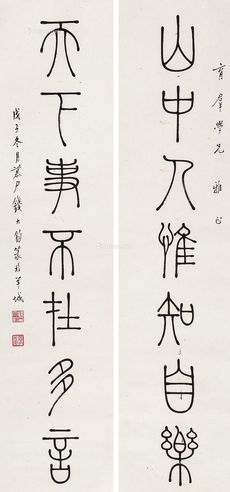 育羣學兄 雅正
山中人惟知自樂
天下事不在多言
戊子冬月慕尹錢大鈞篆於羊城